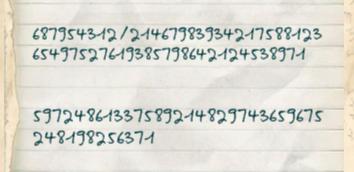 687954312/2146798393421758812 3
65497527619385798642124538971
5972486133758921482974365967 5
248198256371